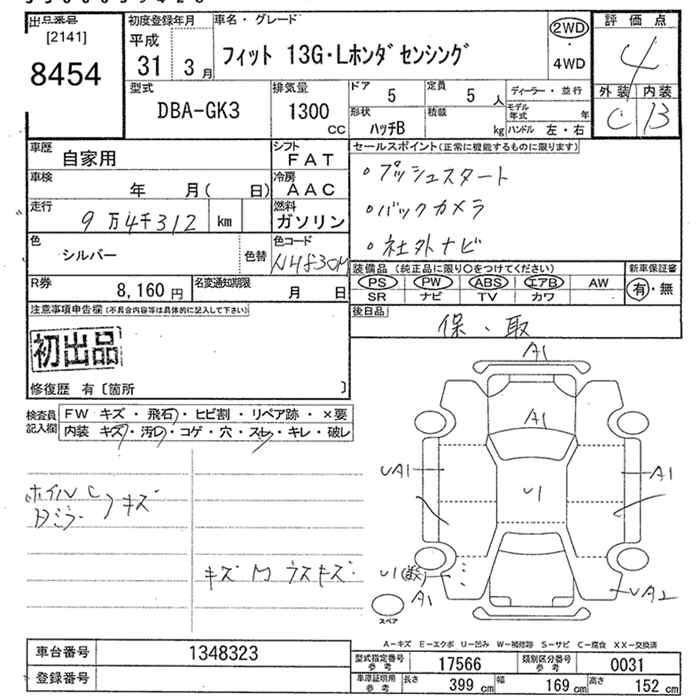 出品番号
[2141]
8454
初度登録年月
平成
31 3月
車名・グレード
フィット 13G・Lホンダセンシング
2WD
・
4WD
評価点
4
外装 内装
C B
型式
DBA-GK3
排気量
1300
CC
ドア
5
定員
5 人
形状
ハッチB
積載
kg
ディーラー・並行
モデル年式 年
ハンドル 左・右
車歴
自家用
シフト
FAT
車検
年 月( 日)
冷房
AAC
走行
9万4千312 km
燃料
ガソリン
色
シルバー
色替
色コード
NH830M
R券
8,160 円
名変通知期限
月 日
セールスポイント(正常に機能するものに限ります)
・プッシュスタート
・バックカメラ
・社外ナビ
装備品(純正品に限り〇をつけてください)
新車保証書
PS PW ABS エアB AW
有・無
SR ナビ TV カワ
後日品
保、取
注意事項申告欄(不具合内容等は具体的に記入して下さい)
初出品
修復歴 有〔箇所 〕
検査員記入欄
FW キズ・飛石・ヒビ割・リペア跡・×要
内装 キズ・汚レ・コゲ・穴・スレ・キレ・破レ
ホイルC
キズ
キズM ウスキズ
A1
A1
UA1
U1
A1
U1
A1
UA2
スペア
A-キズ E-エクボ U-凹み W-補修跡 S-サビ C-腐食 XX-交換済
車台番号
1348323
登録番号
型式指定番号
参考
17566
類別区分番号
参考
0031
車庫証明用
参考
長さ 399 cm
幅 169 cm
高さ 152 cm